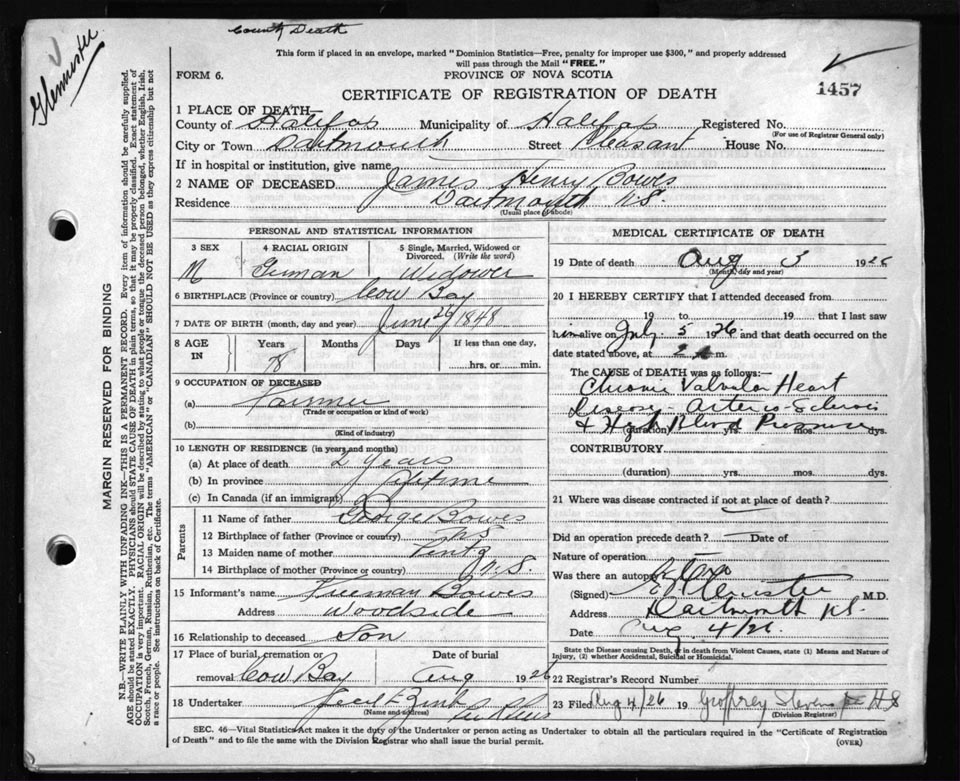 County Death
Glenister
This form if placed in an envelope, marked "Dominion Statistics—Free, penalty for improper use $300," and properly addressed
will pass through the Mail "FREE."
FORM 6.
PROVINCE OF NOVA SCOTIA
1457
CERTIFICATE OF REGISTRATION OF DEATH
1 PLACE OF DEATH—
County of Halifax Municipality of Halifax Registered No.
(For use of Registrar General only)
City or Town Dartmouth Street Pleasant House No.
If in hospital or institution, give name
2 NAME OF DECEASED James Henry Bowes
Residence Dartmouth N.S.
(Usual place of abode)
PERSONAL AND STATISTICAL INFORMATION
3 SEX 4 RACIAL ORIGIN 5 Single, Married, Widowed or
Divorced. (Write the word)
M German Widower
6 BIRTHPLACE (Province or country) Cow Bay
7 DATE OF BIRTH (month, day and year) June 29 1848
8 AGE IN Years Months Days If less than one day,
78 hrs. or min.
9 OCCUPATION OF DECEASED
(a) Farmer
(Trade or occupation or kind of work)
(b)
(Kind of industry)
10 LENGTH OF RESIDENCE (in years and months)
(a) At place of death 2 years
(b) In province Lifetime
(c) In Canada (if an immigrant)
Parents
11 Name of father George Bowes
12 Birthplace of father (Province or country) N S
13 Maiden name of mother
14 Birthplace of mother (Province or country) N.S.
15 Informant's name Freeman Bowes
Address Woodside
16 Relationship to deceased Son
17 Place of burial, cremation or Date of burial
removal Cow Bay Aug 1926
18 Undertaker
(Name and address)
MEDICAL CERTIFICATE OF DEATH
19 Date of death Aug 3 1926
(Month, day and year)
20 I HEREBY CERTIFY that I attended deceased from
19 to 19 that I last saw
him alive on July 5 1926 and that death occurred on the
date stated above, at 2 m.
The CAUSE of DEATH was as follows:—
Chronic Valvular Heart
Disease, Arterio-Sclerosis
& High Blood Pressure
(duration) yrs. mos. dys.
CONTRIBUTORY
(duration) yrs. mos. dys.
21 Where was disease contracted if not at place of death?
Did an operation precede death? Date of
Nature of operation
Was there an autopsy
(Signed) Glenister M.D.
Address Dartmouth N.S.
Date Aug. 4/26.
State the Disease causing Death, or in death from Violent Causes, state (1) Means and Nature of
Injury, (2) whether Accidental, Suicidal or Homicidal.
22 Registrar's Record Number
23 Filed Aug 4/26 19 Geoffrey Stevens
(Division Registrar)
SEC. 46—Vital Statistics Act makes it the duty of the Undertaker or person acting as Undertaker to obtain all the particulars required in the "Certificate of Registration
of Death" and to file the same with the Division Registrar who shall issue the burial permit.
(OVER)
MARGIN RESERVED FOR BINDING
N.B.—WRITE PLAINLY WITH UNFADING INK—THIS IS A PERMANENT RECORD. Every item of information should be carefully supplied.
AGE should be stated EXACTLY. PHYSICIANS should STATE CAUSE OF DEATH in plain terms, so that it may be properly classified. Exact statement of
OCCUPATION is very important. RACIAL ORIGIN will be described by stating to what people or tongue the deceased person belonged, whether English, Irish,
Scotch, French, German, Russian, Ruthenian, etc. The terms "AMERICAN" or "CANADIAN" SHOULD NOT BE USED as they express citizenship but not
a race or people. See instructions on back of Certificate.